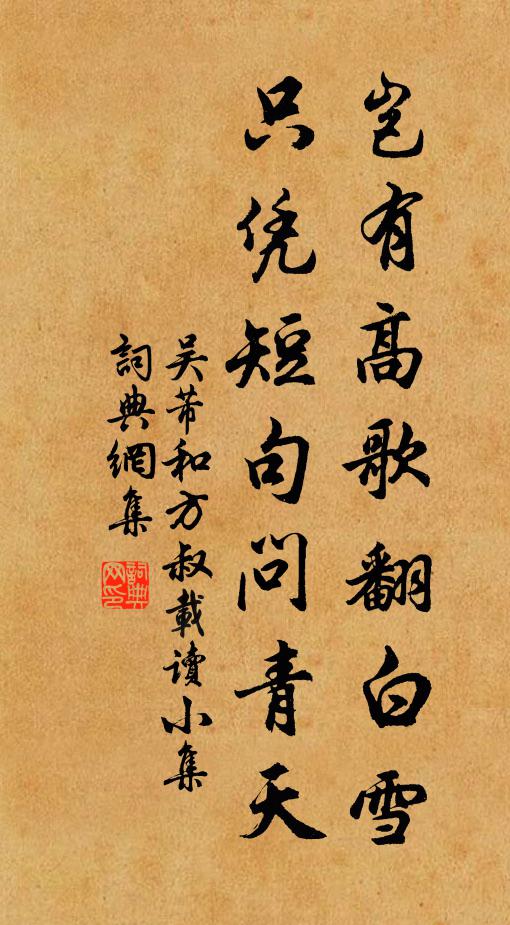 岂有高歌翻白雪
只凭短句问青天
吴芾和方叔载读小集
詞典網集
詞典網印